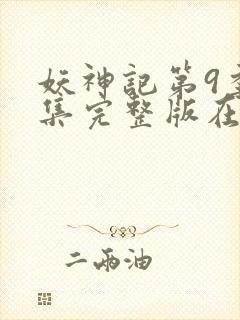 妖神記第9
集完整版在
二兩油